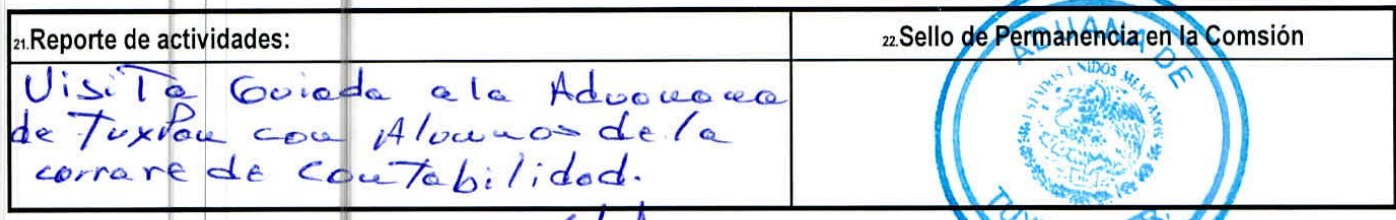 21.Reporte de actividades:
22.Sello de Permanencia en la Comsión
Visita Guiada a la Advouana
de Tuxpan con Alumnos de la
corrare de Contabilidad.
ADUANA DE
ESTADOS UNIDOS MEXICANOS